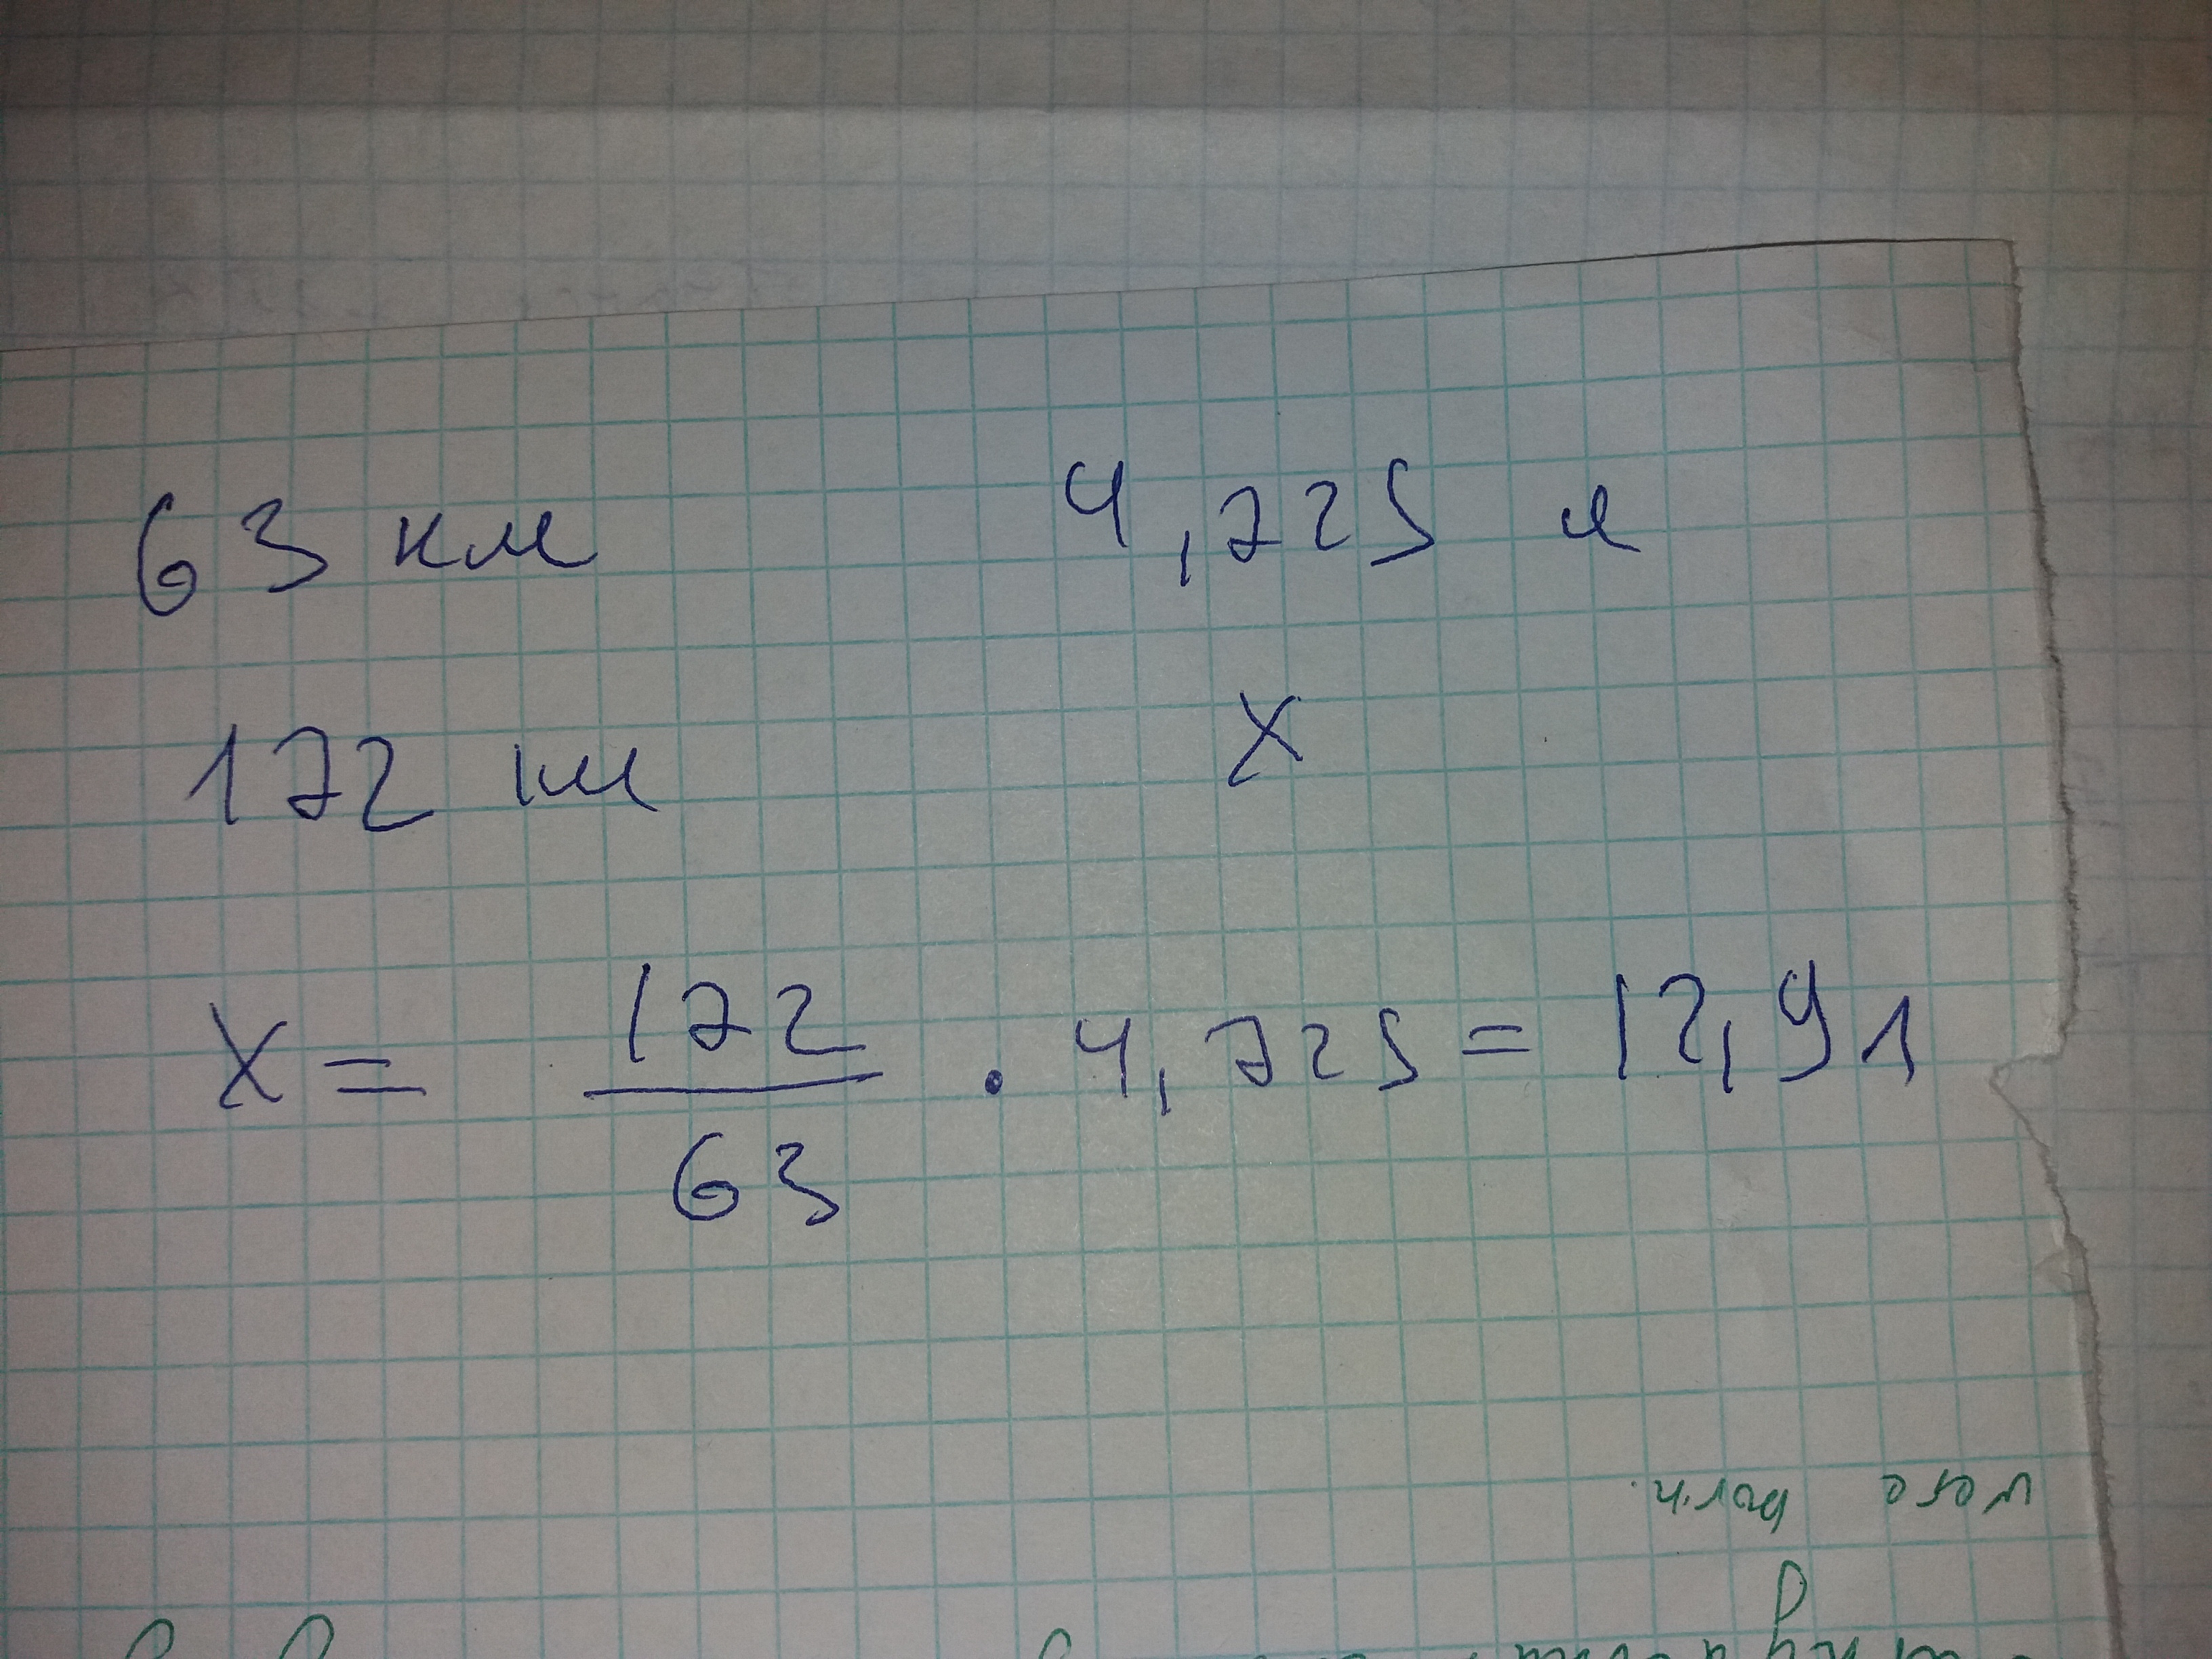 63 км 4,725 л
172 км X
X = 172/63 · 4,725 = 12,9 л